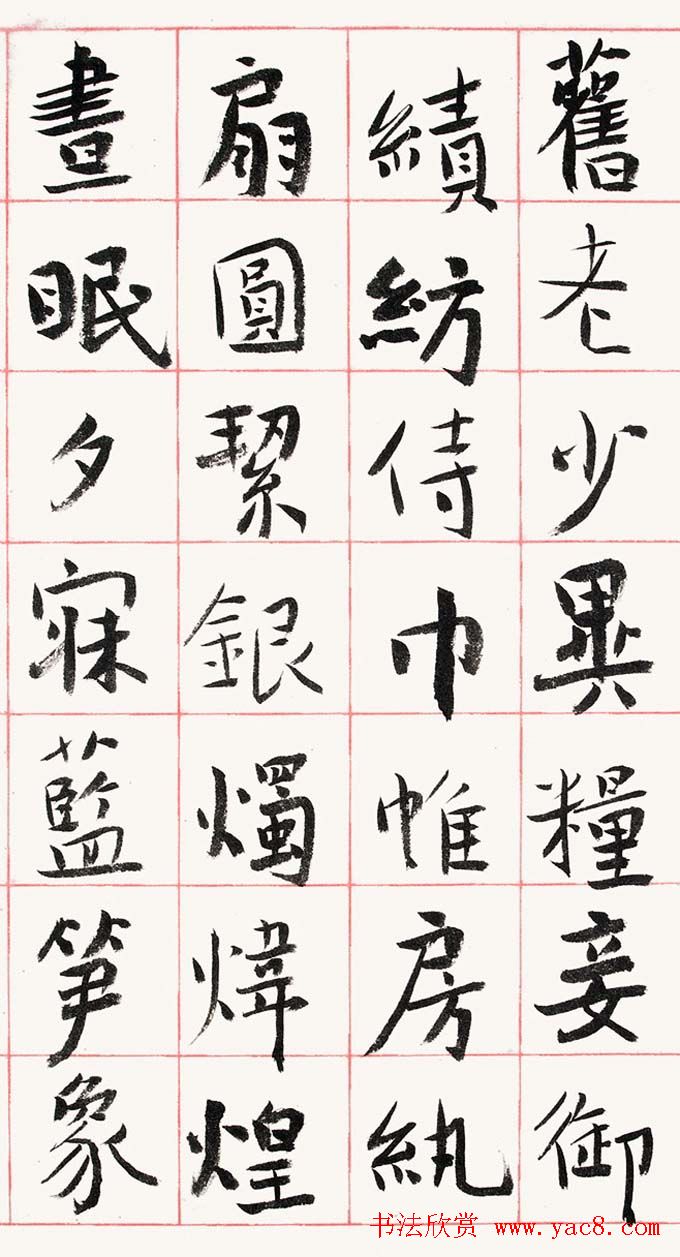 舊老少異糧妾御
績紡侍巾帷房紈
扇圓絜銀燭煒煌
晝眠夕寐藍笋象
书法欣赏 www.yac8.com